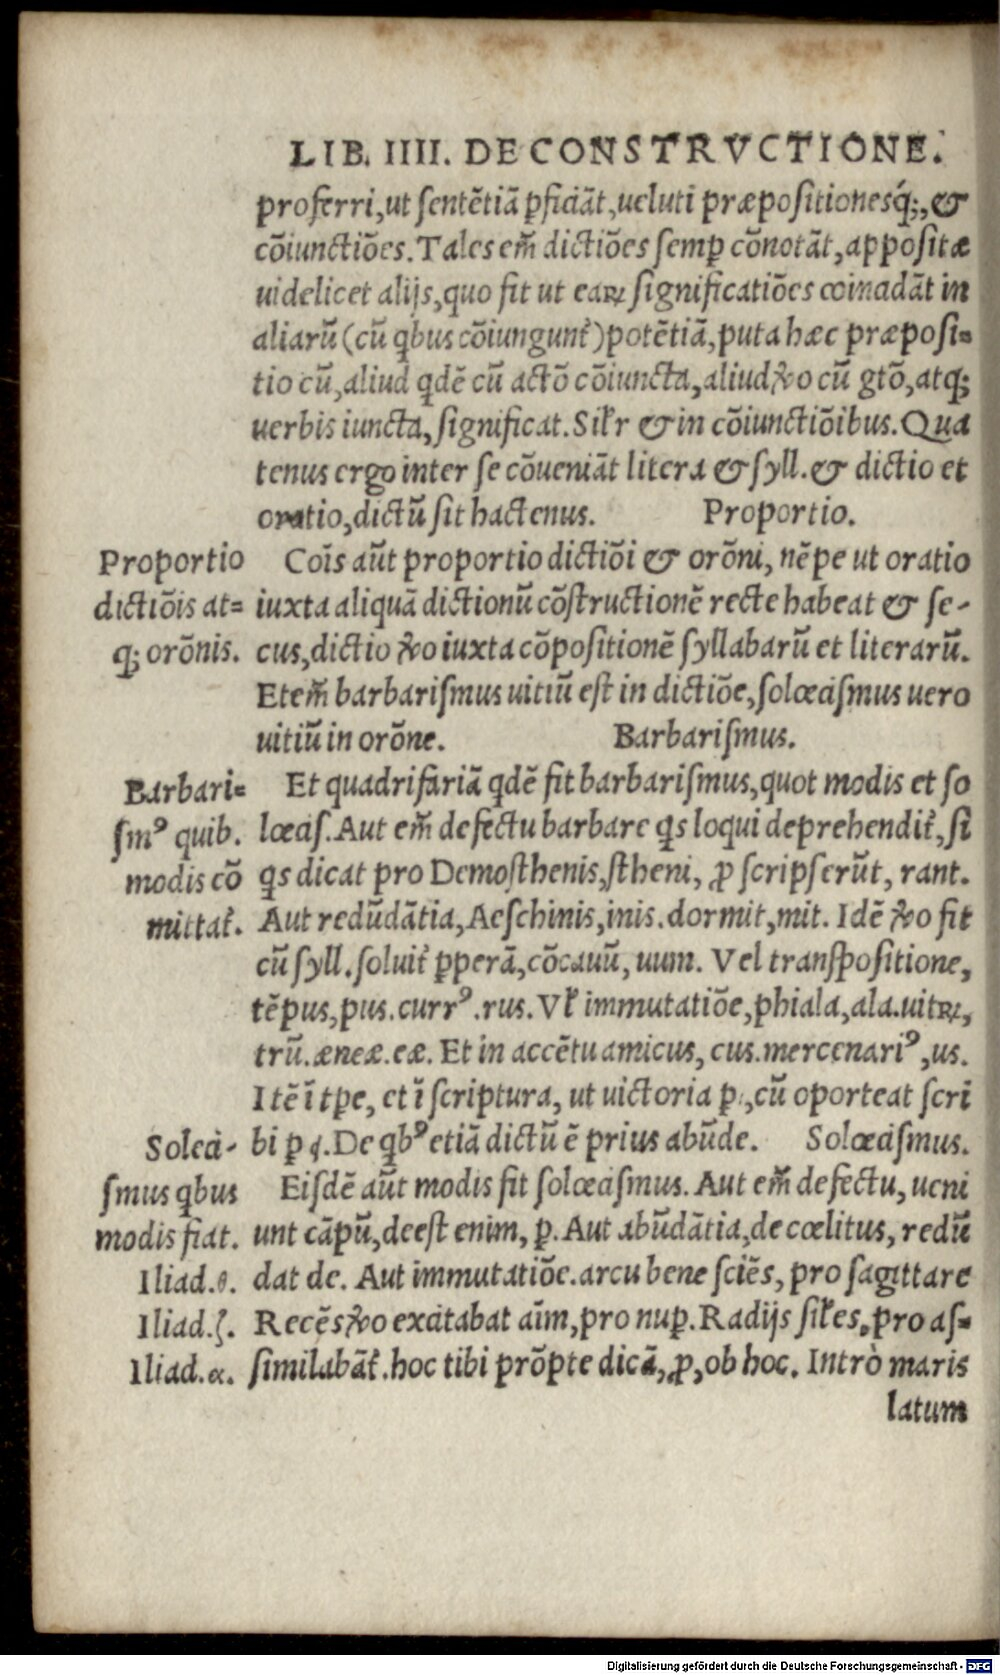 LIB. IIII. DE CONSTRVCTIONE.
proferri, ut sentẽtiã ꝑficiãt, ueluti præpositionesq́;, &
cõiunctiões. Tales em̃ dictiões semꝑ cõnotãt, appositæ
uidelicet alijs, quo fit ut eaꝝ significatiões coincadãt in
aliarũ (cũ qbus cõiungunt̃) potẽtiã, puta hæc præposi=
tio cũ, aliud qdẽ cũ actõ cõiuncta, aliud ꝟo cũ gtõ, atq;
uerbis iuncta, significat. Silr̃ & in cõiunctiõibus. Qua
tenus ergo inter se cõueniãt litera & syll. & dictio et
oratio, dictũ sit hactenus. Proportio.
Proportio
dictiõis at=
q; orõnis.
Coĩs aũt proportio dictiõi & orõni, nẽpe ut oratio
iuxta aliquã dictionũ cõstructionẽ recte habeat & se-
cus, dictio ꝟo iuxta cõpositionẽ syllabarũ et literarũ.
Etem̃ barbarismus uitiũ est in dictiõe, solœcismus uero
uitiũ in orõne. Barbarismus.
Barbari=
smꝰ quib.
modis cõ
mittat̃.
Et quadrifariã qdẽ fit barbarismus, quot modis et so
lœcis. Aut em̃ defectu barbare qs loqui deprehendit̃, si
qs dicat pro Demosthenis, stheni, ꝓ scripserũt, rant.
Aut redũdãtia, Aeschinis, inis. dormit, mit. Idẽ ꝟo fit
cũ syll. soluit̃ ꝑperã, cõcauũ, uum. Vel transpositione,
tẽpus, pus. currꝰ. rus. Vl̃ immutatiõe, phiala, ala. uitꝝ,
trũ. æneæ. eæ. Et in accẽtu amicus, cus. mercenariꝰ, us.
Itẽ ĩ tꝑe, et ĩ scriptura, ut uictoria p., cũ oporteat scri
bi p . De qbꝰ etiã dictũ ẽ prius abũde. Solœcismus.
Soleci-
smus qbus
modis fiat.
Iliad.θ.
Iliad.ζ.
Iliad.α.
Eisdẽ aũt modis fit solœcismus. Aut em̃ defectu, ueni
unt cãpũ, deest enim, ꝑ. Aut abũdãtia, de cœlitus, redũ
dat de. Aut immutatiõe. arcu bene sciẽs, pro sagittare
Recẽs ꝟo excitabat aĩm, pro nuꝑ. Radijs sil̃es, pro as=
similabãt̃. hoc tibi prõpte dicã, ꝓ, ob hoc. Intrò maris
latum
Digitalisierung gefördert durch die Deutsche Forschungsgemeinschaft - DFG